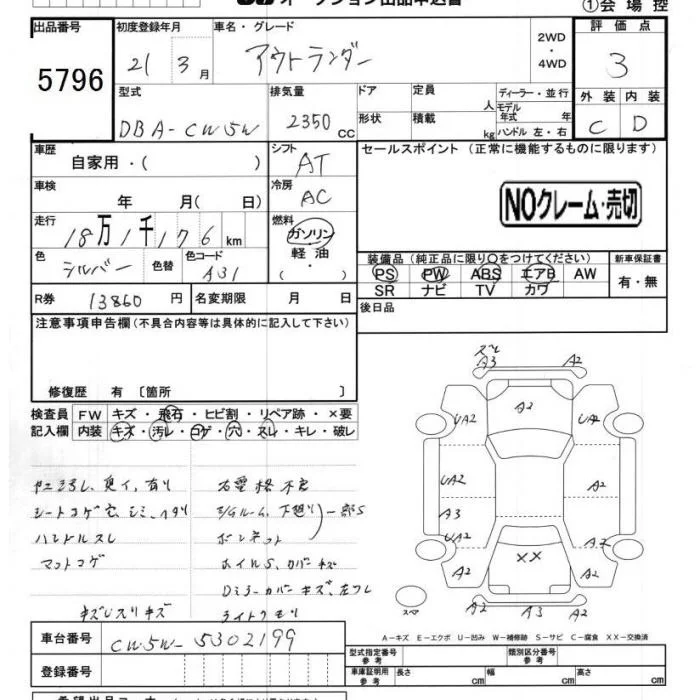 オークション出品申込書
①会場控
出品番号 初度登録年月 車名・グレード 2WD・4WD 評価点
5796 21 3月 アウトランダー 3
型式 排気量 ドア 定員 人 ディーラー・並行 外装 内装
DBA-CW5W 2350 CC 形状 積載 kg モデル年式 年 ハンドル 左・右 C D
車歴 自家用・( ) シフト AT セールスポイント (正常に機能するものに限ります)
車検 年 月( 日) 冷房 AC
NOクレーム・売切
走行 18万1千176km 燃料 ガソリン 軽油・( )
色 シルバー 色替 色コード A31
装備品(純正品に限り○をつけてください) 新車保証書
PS PW ABS エアB AW 有・無
SR ナビ TV カワ
R券 13860円 名変期限 月 日
後日品
注意事項申告欄(不具合内容等は具体的に記入して下さい)
修復歴 有 〔箇所 〕
検査員 FW キズ・飛石・ヒビ割・リペア跡・×要
記入欄 内装 キズ・汚レ・コゲ・穴・スレ・キレ・破レ
ヤニ汚レ、臭イ、有り 右電格不良
シートコゲ穴、シミ、ヘタリ 下廻り 一部S
ハンドルスレ ボンネット
マットコゲ ホイルS、カバーキズ
Dミラーカバーキズ、
キズ ライトクモリ
ズレ
A3 A2
A3
UA2 UA2
UA2 A2
A3
A2 A2
XX
A2 A2
A2 A3 A2
スペア
A-キズ E-エクボ U-凹み W-補修跡 S-サビ C-腐食 XX-交換済
車台番号 CW5W-5302199
型式指定番号 参考 類別区分番号 参考
登録番号
車庫証明用 参考 長さ cm 幅 cm 高さ cm